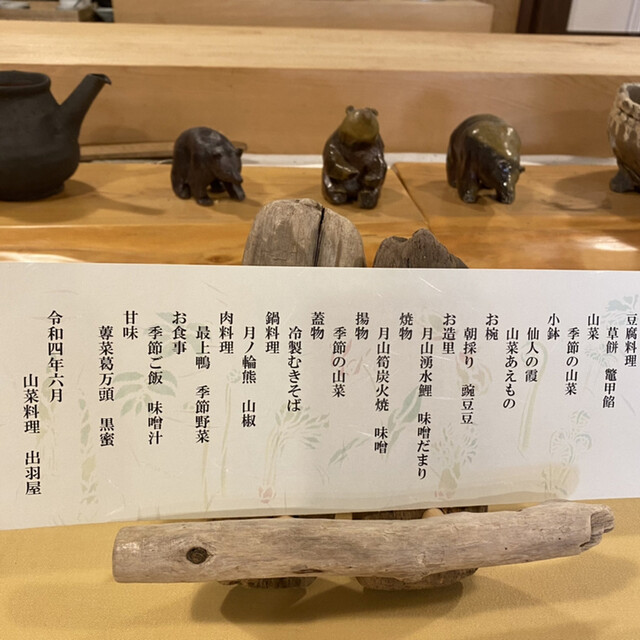 豆腐料理
草餅 鼈甲餡
山菜
季節の山菜
小鉢
仙人の霞
山菜あえもの
お椀
朝採り 豌豆豆
お造里
月山湧水鯉 味噌だまり
焼物
月山筍炭火焼 味噌
揚物
季節の山菜
蓋物
冷製むきそば
鍋料理
月ノ輪熊 山椒
肉料理
最上鴨 季節野菜
お食事
季節ご飯 味噌汁
甘味
蓴菜葛万頭 黒蜜
令和四年六月
山菜料理 出羽屋